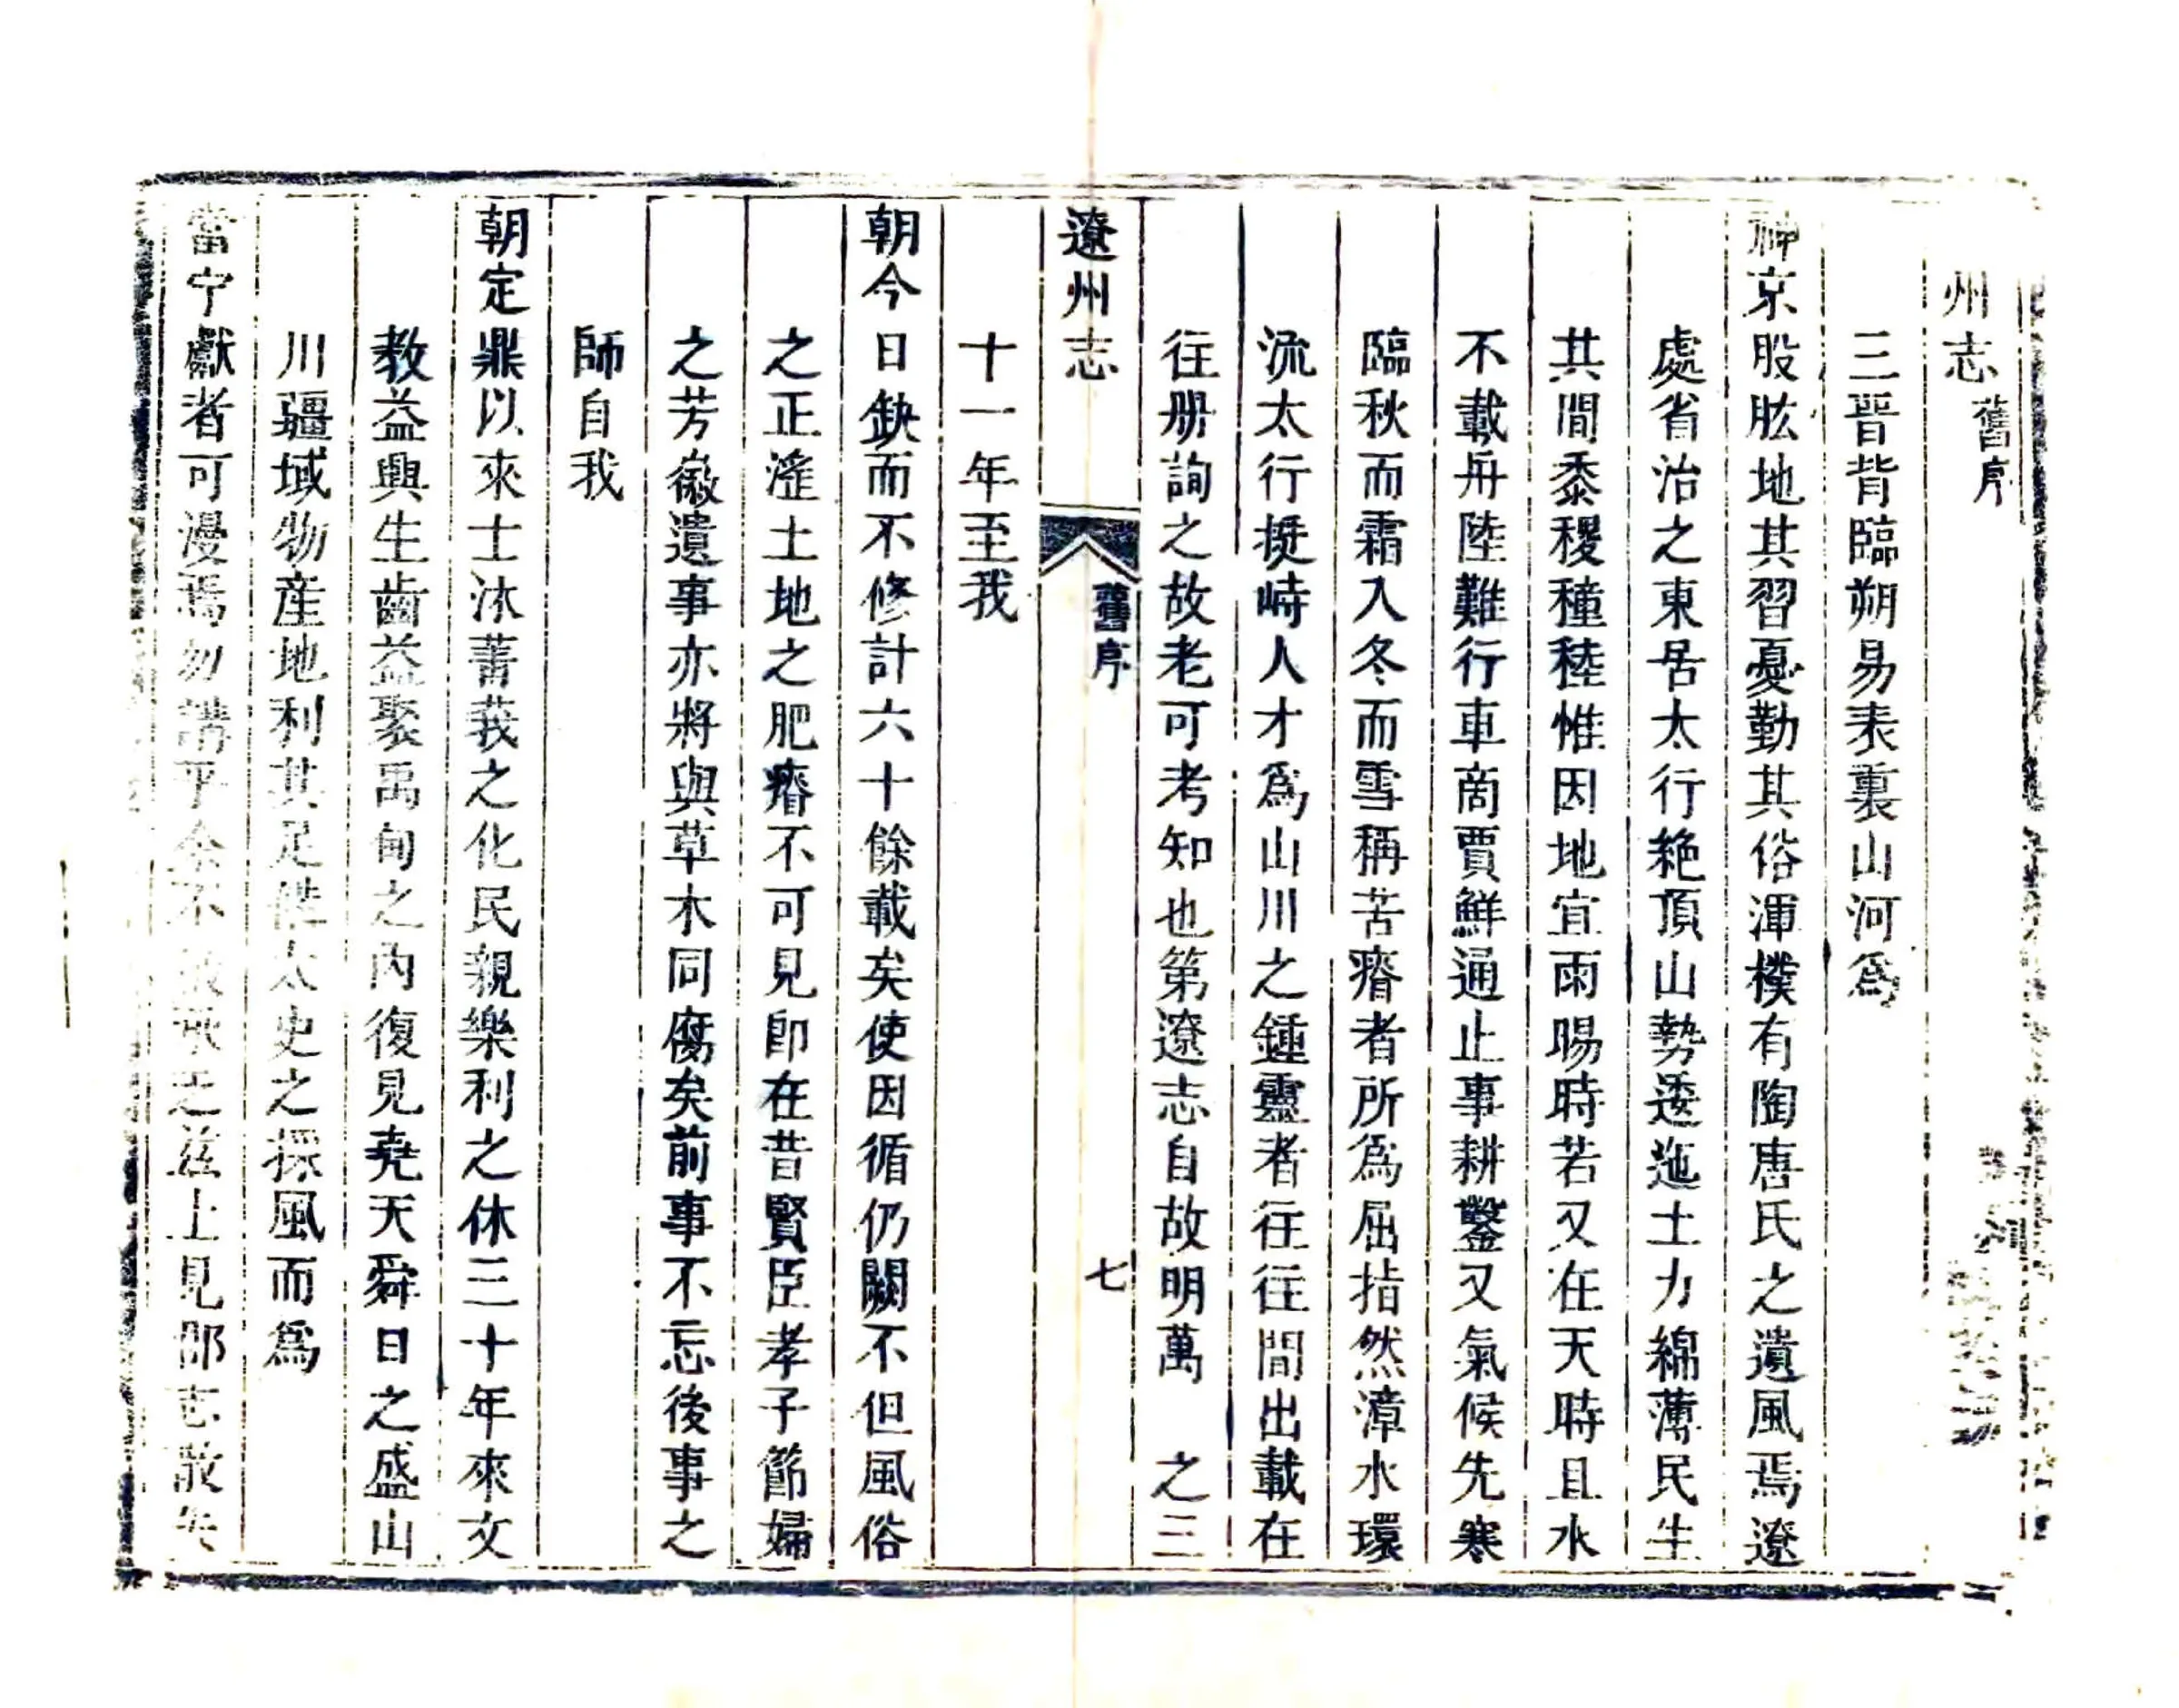 州志舊序
三晉背臨朔易表裏山河爲
神京股肱地其習憂勤其俗渾樸有陶唐氏之遺風焉遼
處省治之東居太行絶頂山勢逶迤土力綿薄民生
其間黍稷穜稑惟因地宜雨暘時若又在天時且水
不載舟陸難行車商賈鮮通止事耕鑿又氣候先寒
臨秋而霜入冬而雪稱苦瘠者所爲屈指然漳水環
流太行挺峙人才爲山川之鍾靈者往往間出載在
往册詢之故老可考知也第遼志自故明萬 之三
十一年至我
遼州志 舊序 七
朝今日缺而不修計六十餘載矣使因循仍闕不但風俗
之正淫土地之肥瘠不可見卽在昔賢臣孝子節婦
之芳徽遺事亦將與草木同腐矣前事不忘後事之
師自我
朝定鼎以來士沐菁莪之化民親樂利之休三十年來文
教益興生齒益聚禹甸之內復見堯天舜日之盛山
川疆域物産地利其足備太史之採風而爲
當宁獻者可漫焉勿講乎余不之茲土見郡志散失